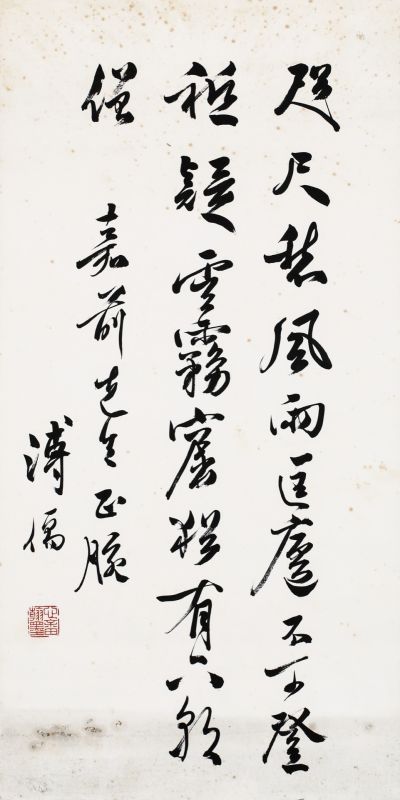 咫尺愁風雨匡廬不可登
祗疑雲霧窟猶有六朝
僧
嘉前先生正腕
溥儒